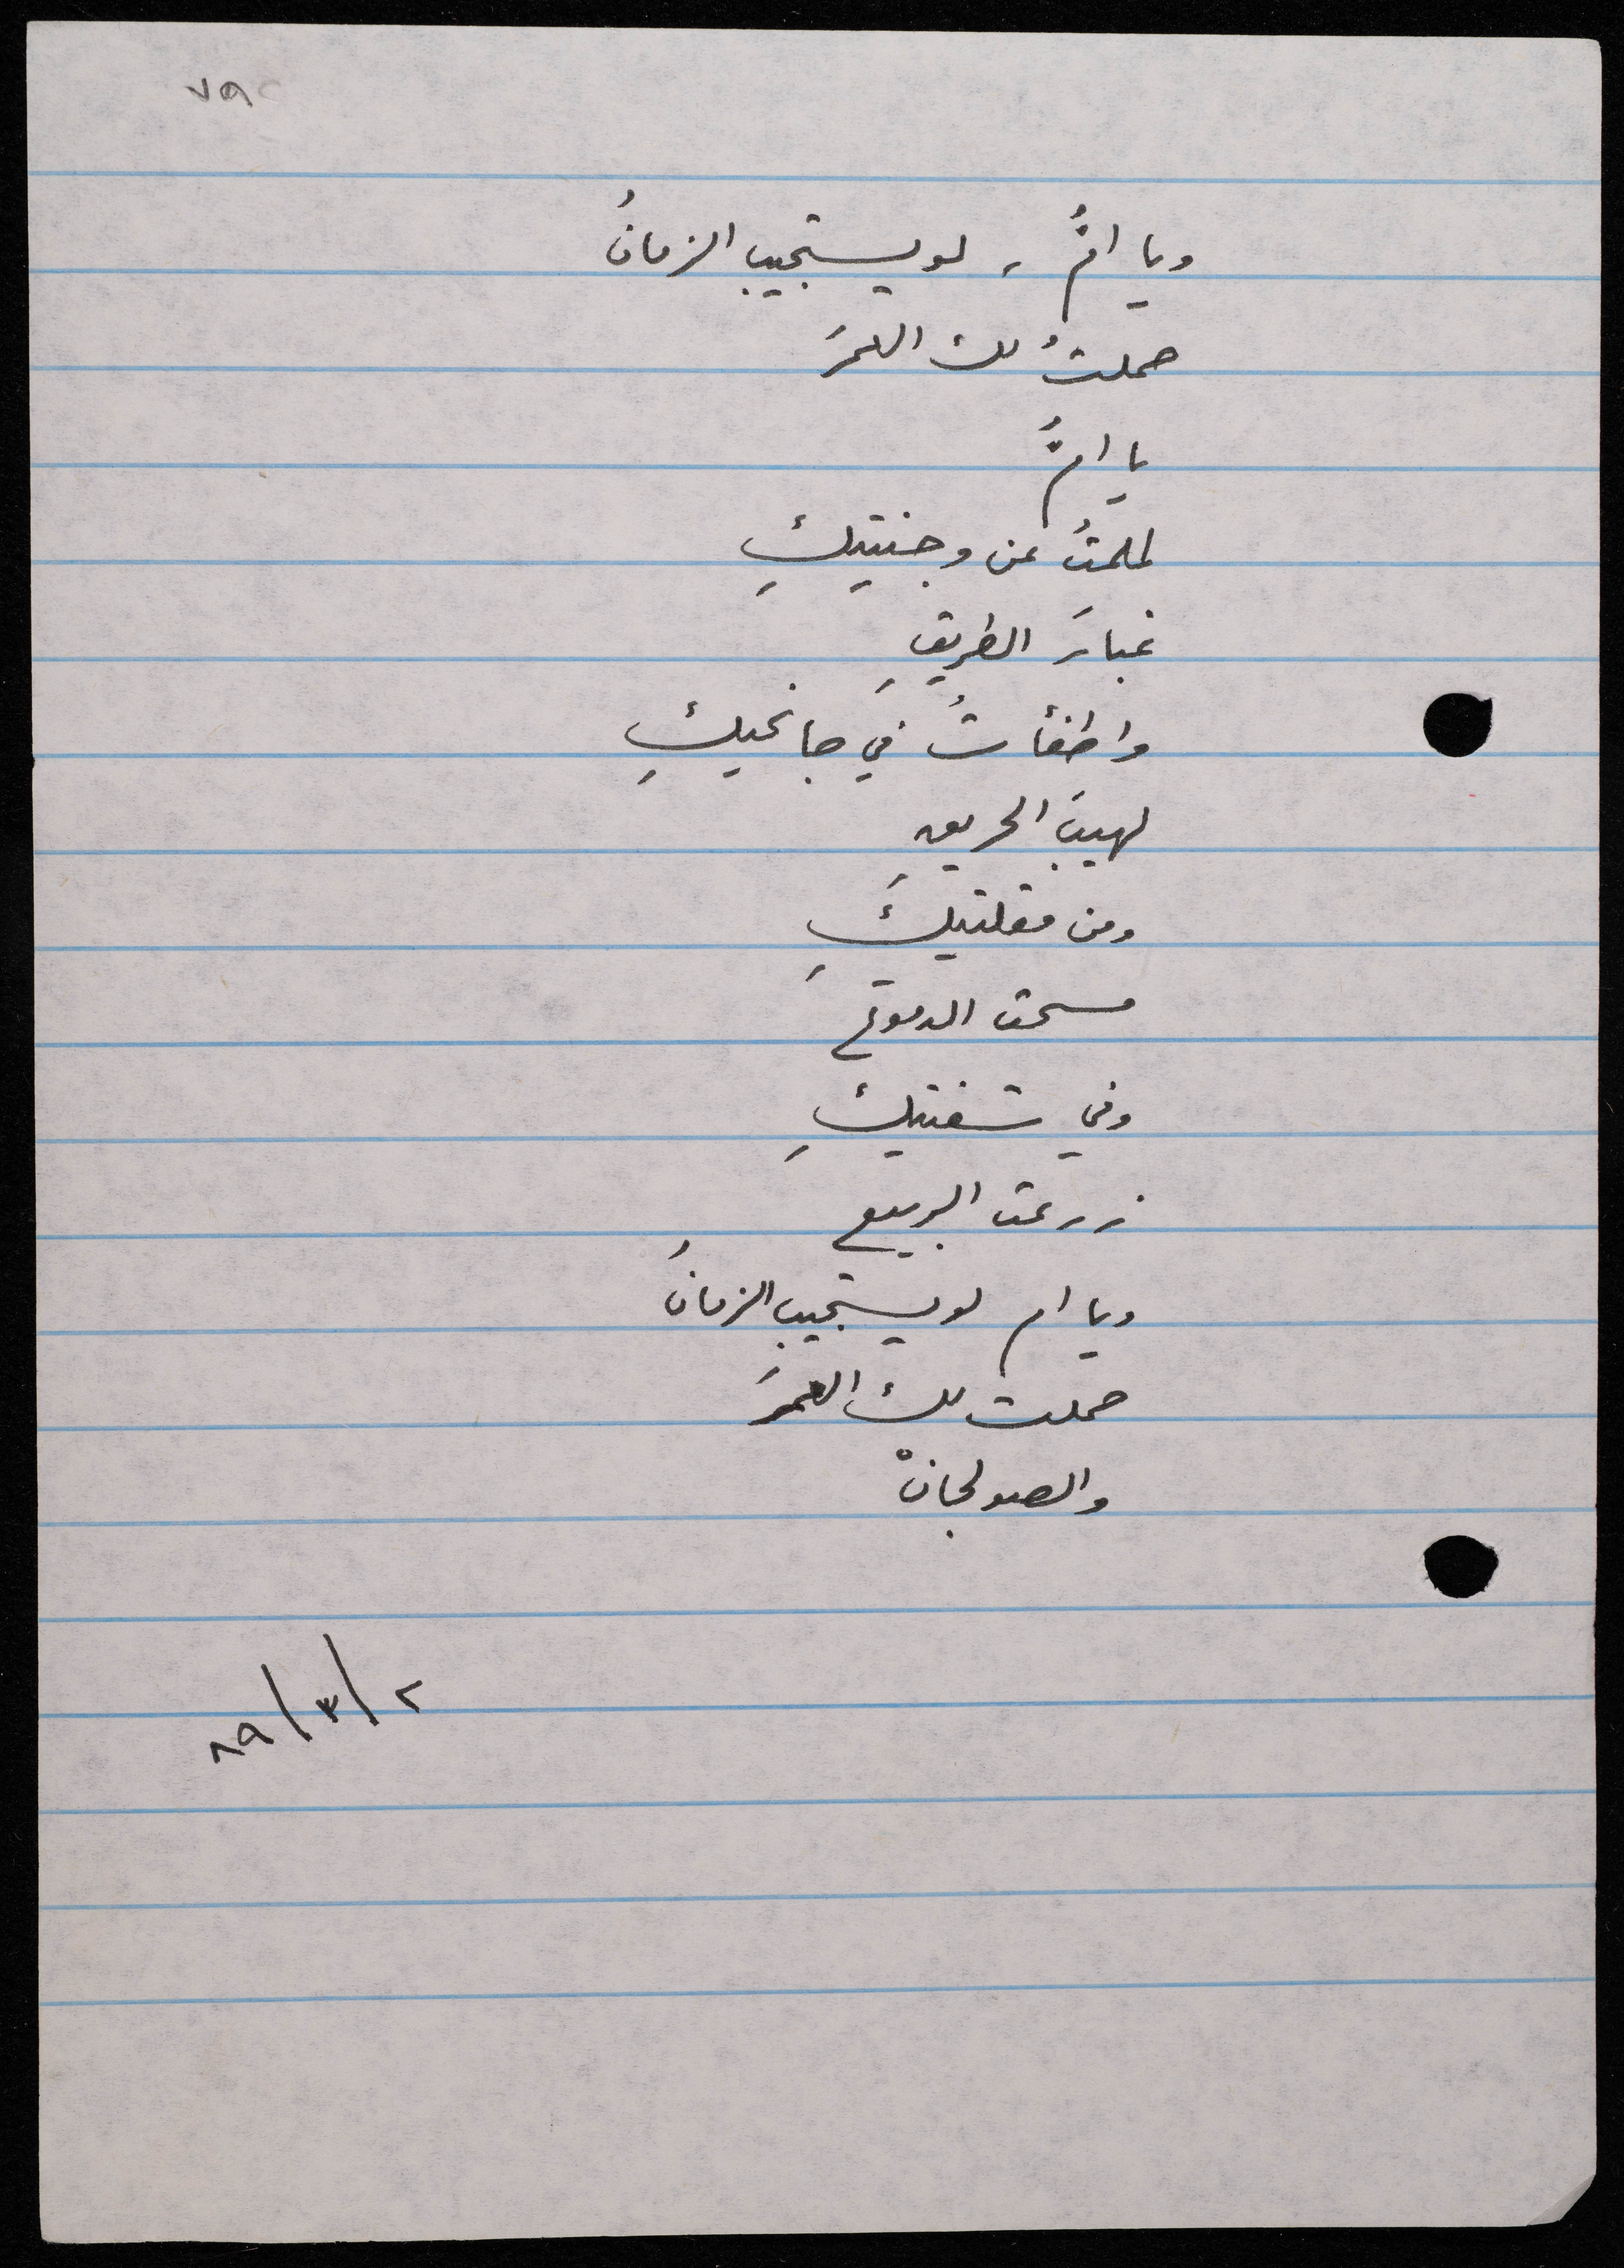 ٧٩
ويا امُّ، لو يستجيب الزمانُ
حملتُ لك العمرَ
يا امُّ
لملمتُ عن وجنتيكِ
غبارَ الطريقِ
واطفأتُ في جانحيكِ
لهيبَ الحريقِ
ومن مقلتيكِ
مسحت الدموع
وفي شفتيكِ
زرعت الربيع
ويا ام لو يستجيب الزمانُ
حملت لك العمرَ
والصولجانْ
٢/٣/٨٩